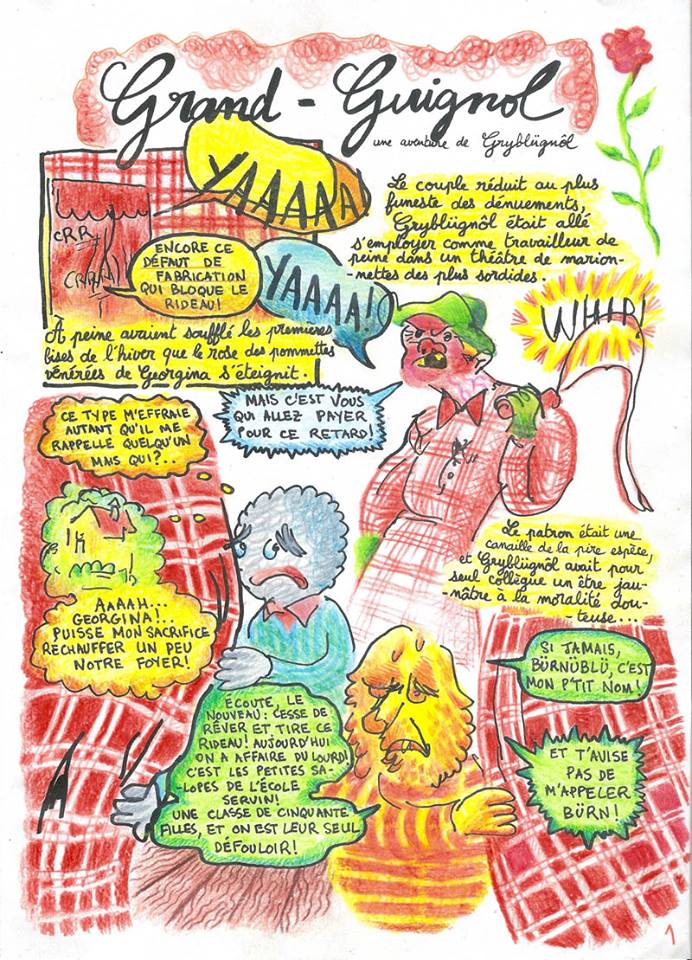 Grand-Guignol
une aventure de Gryblügnôl
YAAAAA
CRR
CRRR
ENCORE CE
DÉFAUT DE
FABRICATION
QUI BLOQUE LE
RIDEAU!
YAAAA!
Le couple réduit au plus
funeste des dénuements,
Gryblügnôl était allé
s'employer comme travailleur de
peine dans un théâtre de marion-
-nettes des plus sordides.
À peine avaient soufflé les premières
bises de l'hiver que le rose des pommettes
vénérées de Georgina s'éteignit.
WHIP!
MAIS C'EST VOUS
QUI ALLEZ PAYER
POUR CE RETARD!
CE TYPE M'EFFRAIE
AUTANT QU'IL ME
RAPPELLE QUELQU'UN
MAIS QUI?..
AAAAH...
GEORGINA!..
PUISSE MON SACRIFICE
RÉCHAUFFER UN PEU
NOTRE FOYER!
Le patron était une
canaille de la pire espèce,
et Gryblügnôl avait pour
seul collègue un être jau-
-nâtre à la moralité dou-
-teuse...
ÉCOUTE, LE
NOUVEAU: CESSE DE
RÊVER ET TIRE CE
RIDEAU! AUJOURD'HUI
ON A AFFAIRE DU LOURD!
C'EST LES PETITES SA-
-LOPES DE L'ÉCOLE
SERVIN!
UNE CLASSE DE CINQUANTE
FILLES, ET ON EST LEUR SEUL
DÉFOULOIR!
SI JAMAIS,
BÜRNÜBLÜ, C'EST
MON P'TIT NOM!
ET T'AVISE
PAS DE
M'APPELER
BÜRN!
1